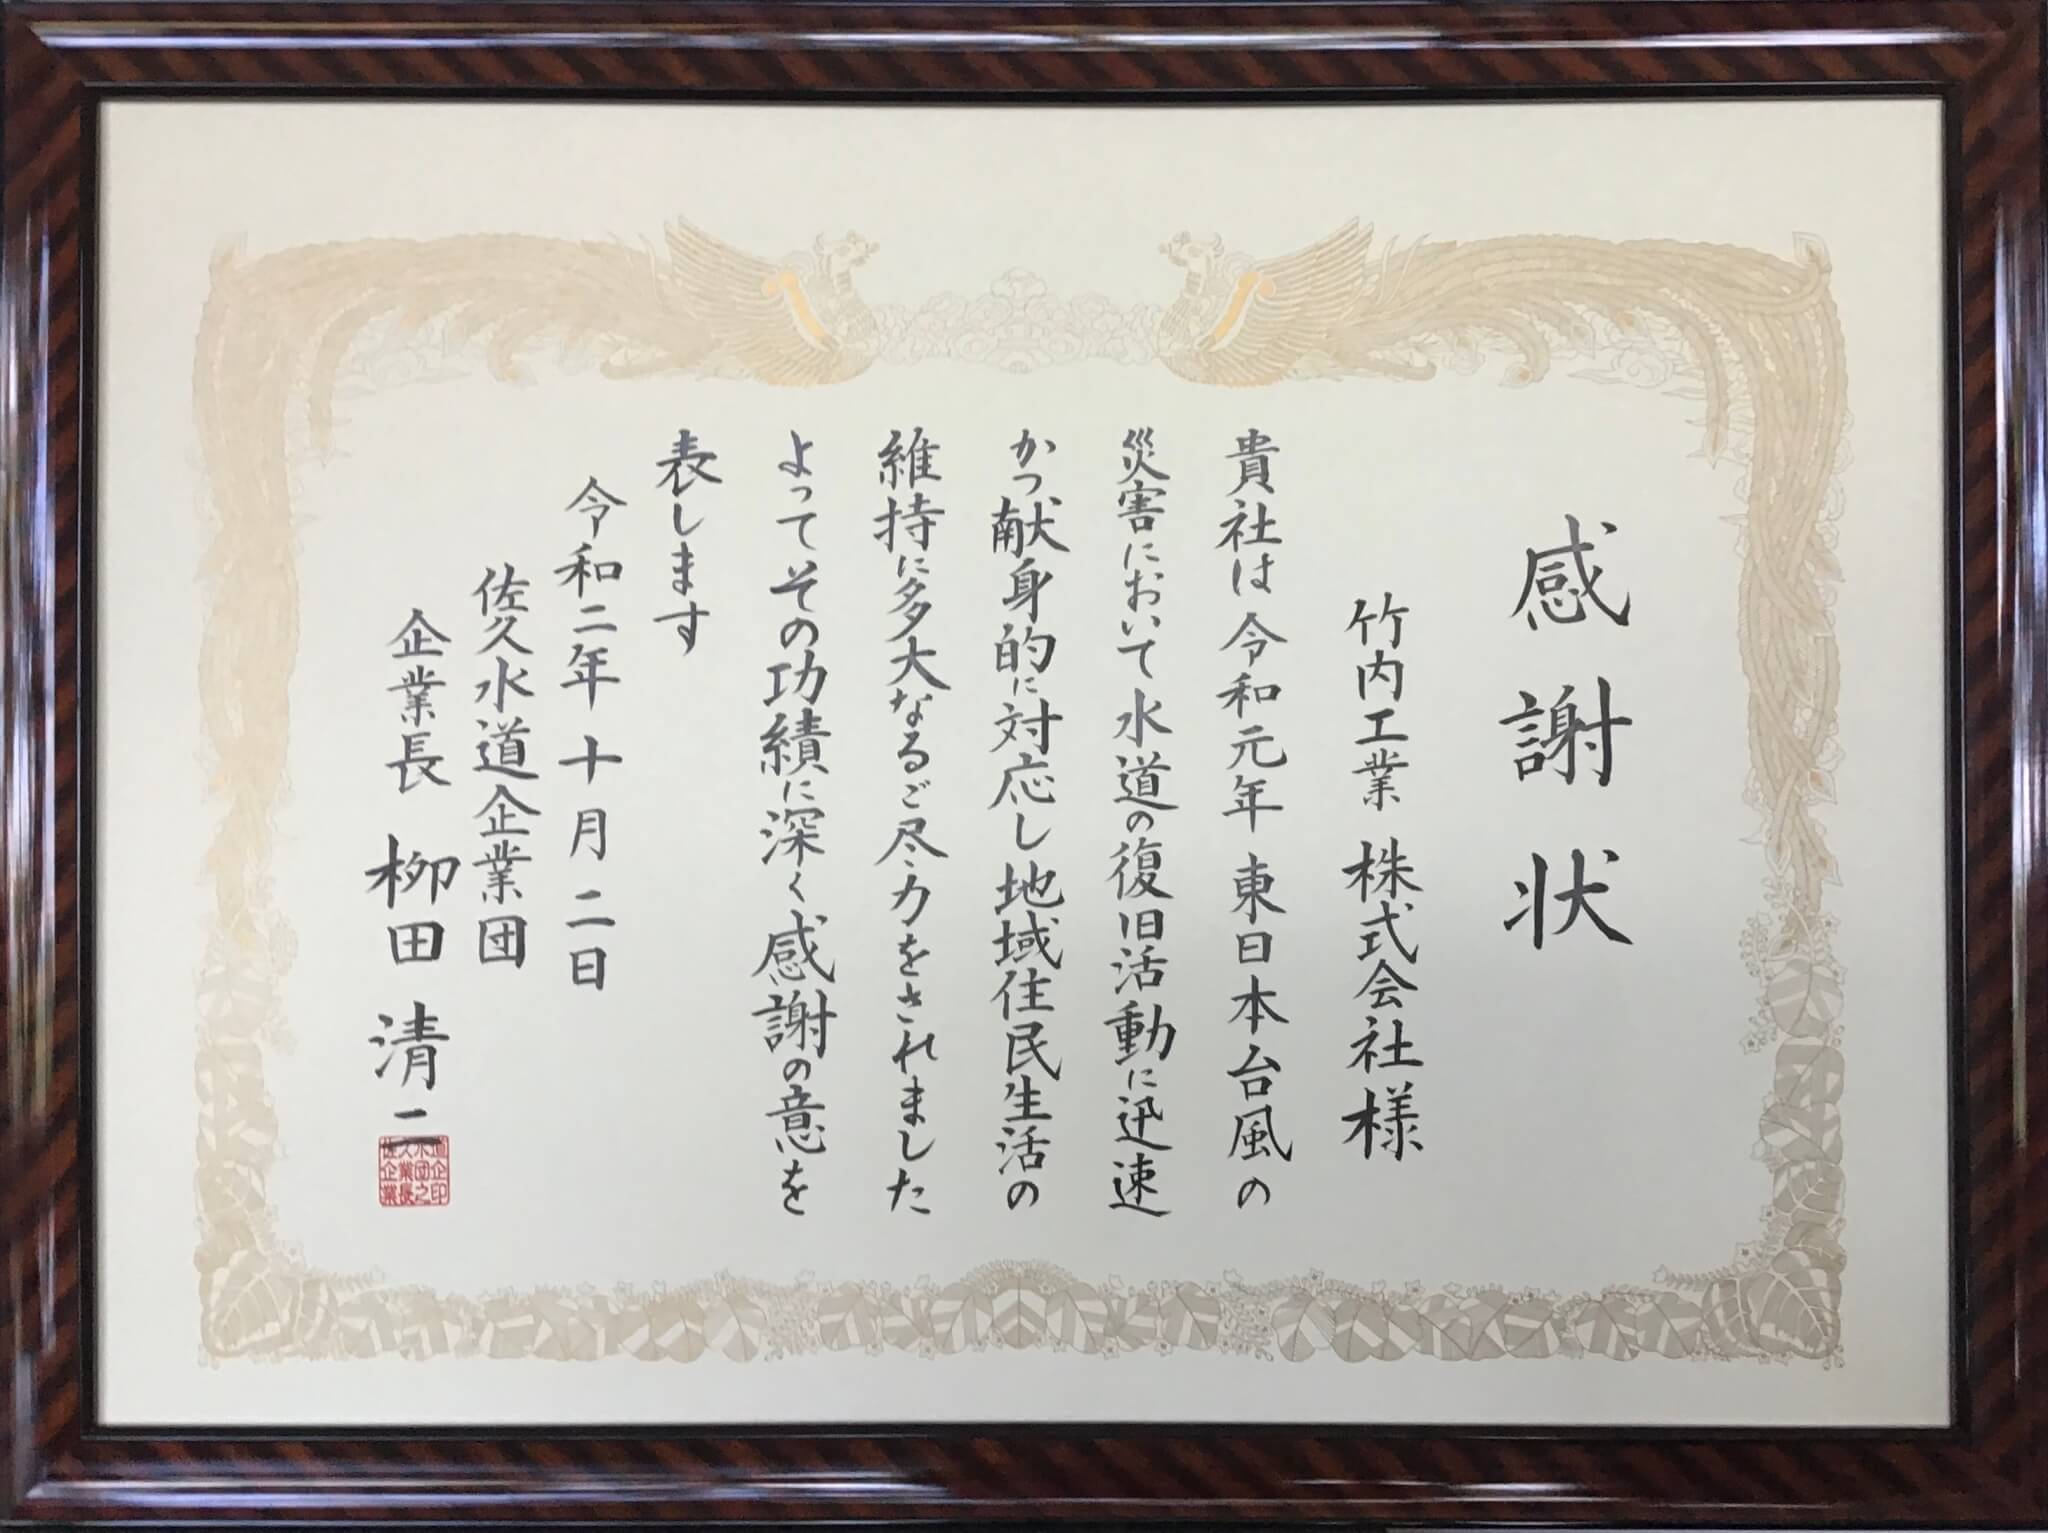 感謝状
竹内工業 株式会社様
貴社は令和元年東日本台風の
災害において水道の復旧活動に迅速
かつ献身的に対応し地域住民生活の
維持に多大なるご尽力をされました
よってその功績に深く感謝の意を
表します
令和二年十月二日
佐久水道企業団
企業長 柳田清二
佐久水道企業団企業長之印